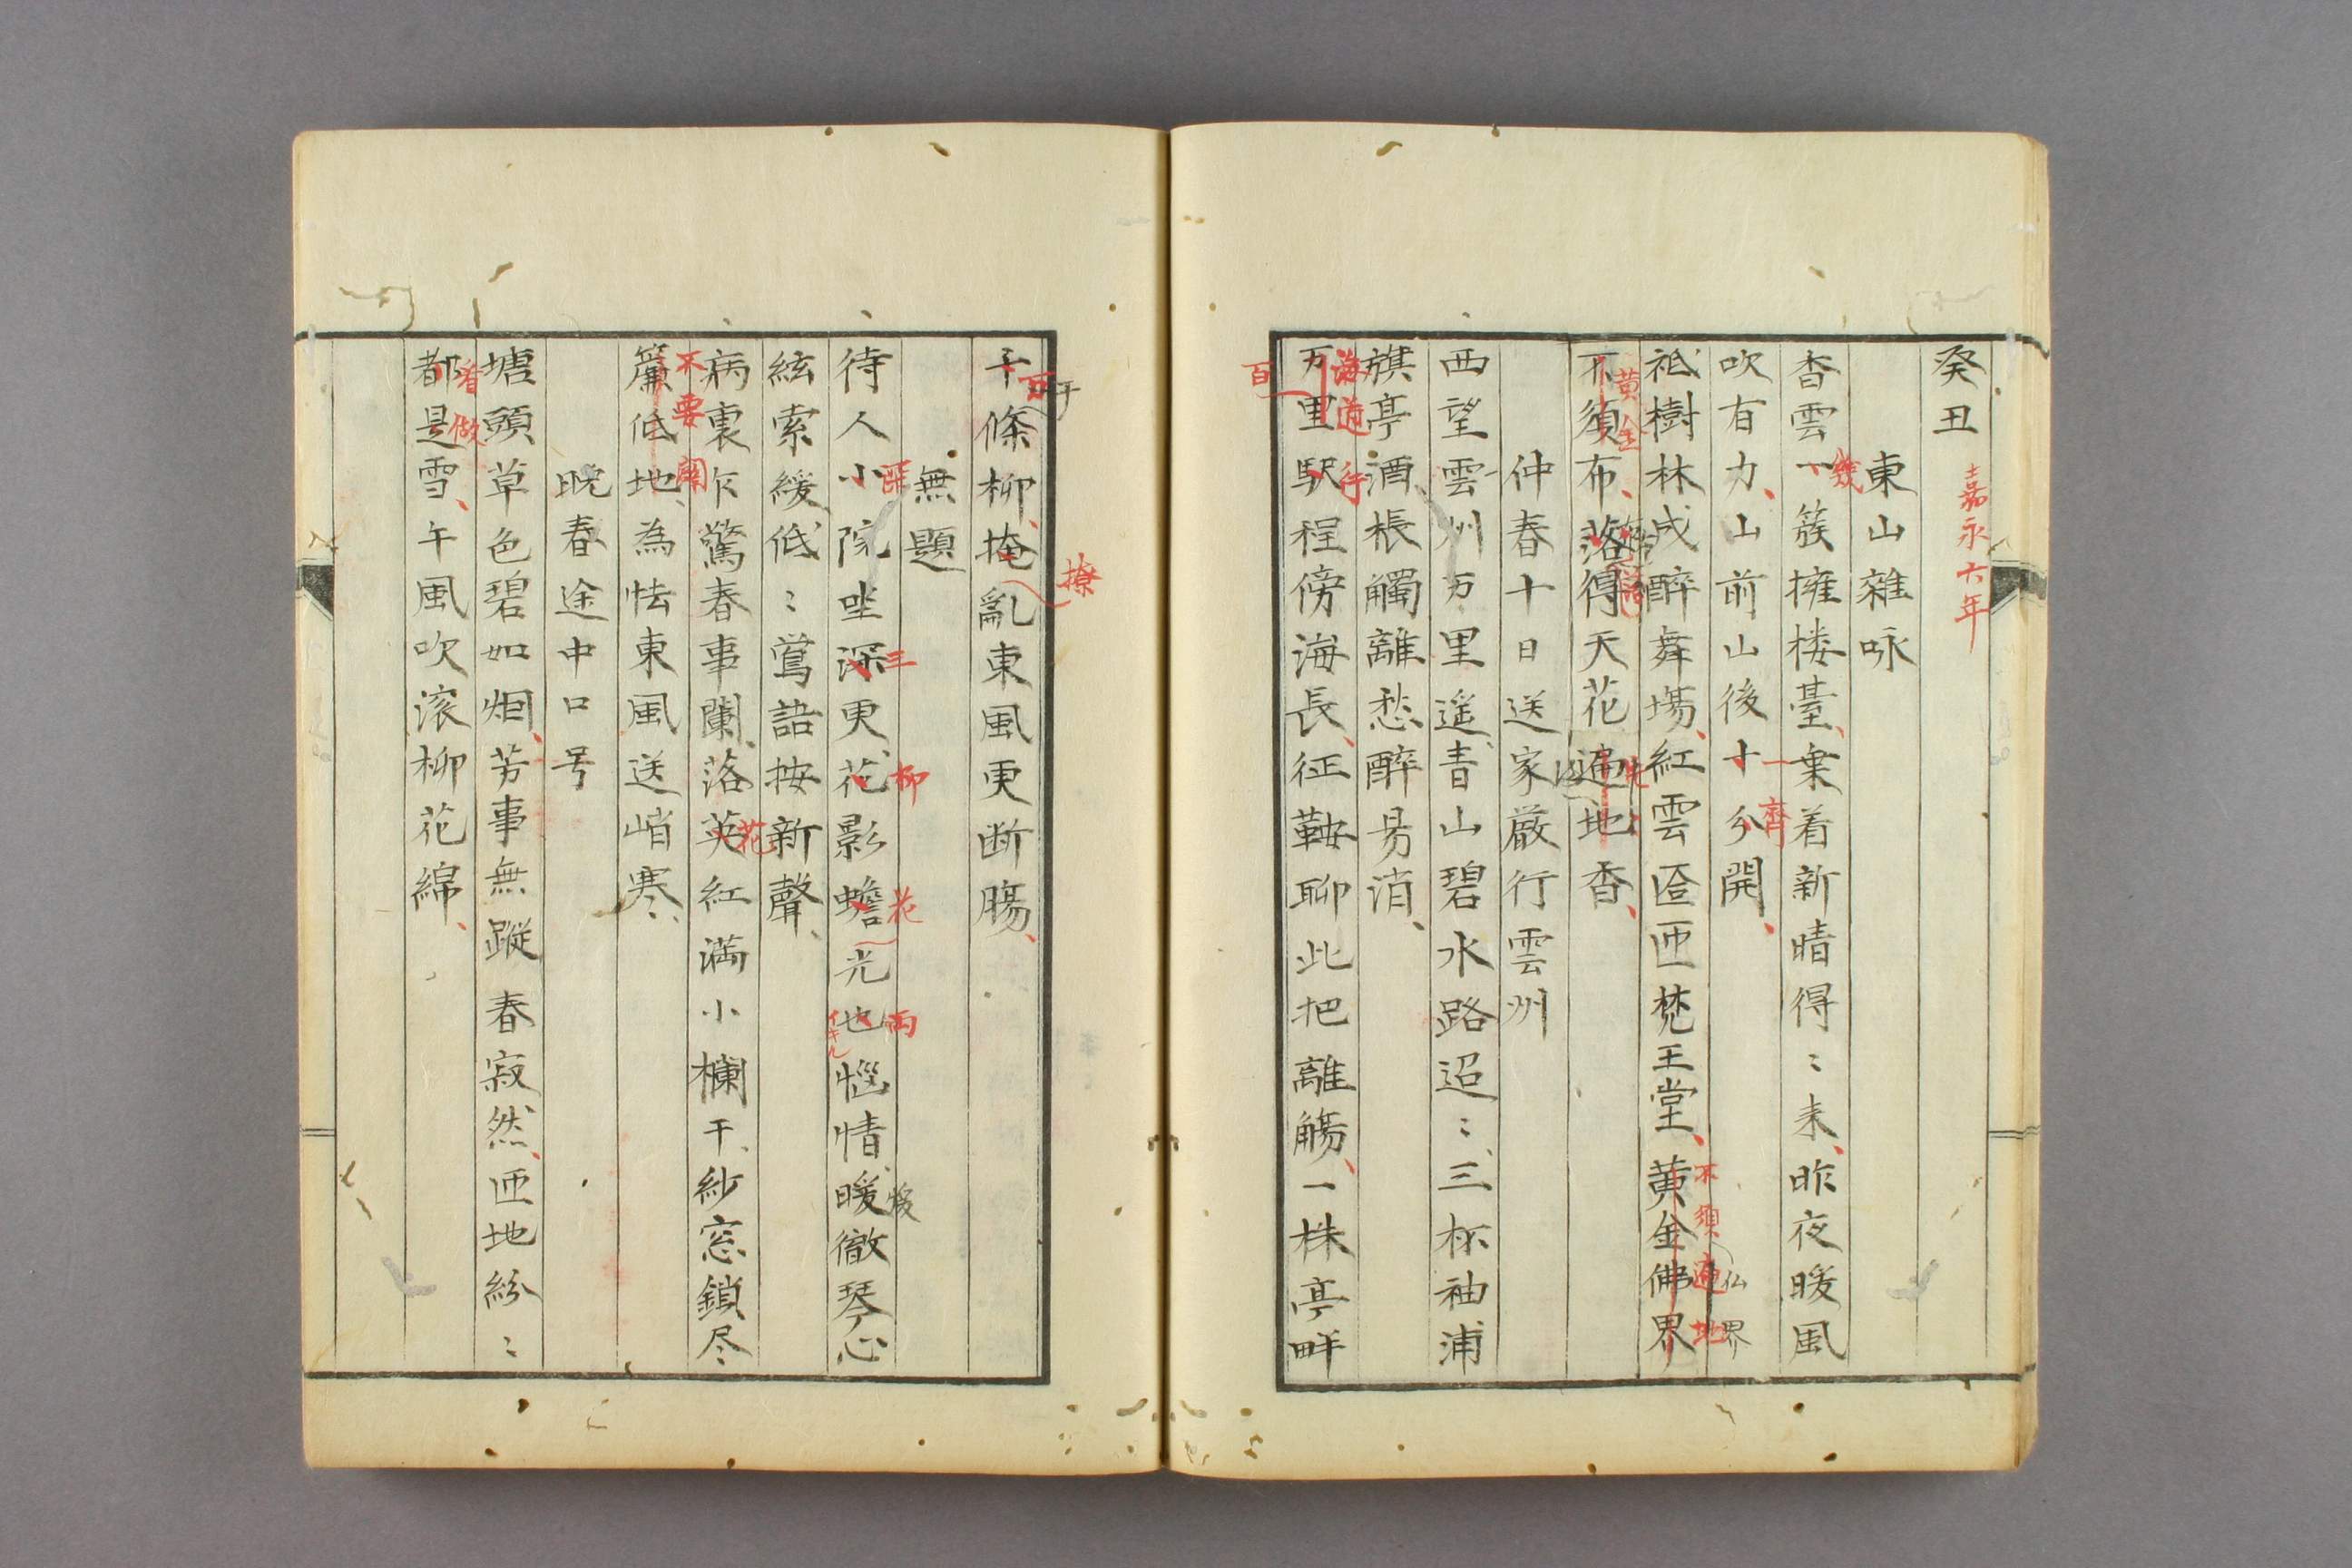 癸丑
嘉永六年
東山雜咏
幾
香雲一簇擁楼臺、棄着新晴得〻来、昨夜暖風
一齊
吹有力、山前山後十分開、
不須遍地
仏界
祗樹林成醉舞場、紅雲匼匝梵王堂、黄金佛界
黄金
不須布、落得天花遍地香、
仲春十日送家厳行雲州
西望雲州万里遥、青山碧水路迢〻、三杯袖浦
旗亭酒、棖觸離愁醉易消、
海道行
百
万里駅程傍海長、征鞍聊此把離觴、一株亭畔
千
百
撩
千條柳、掩亂東風更断腸、
無題
三
柳
花
両
待人小院坐深更、花影蟾光也惱情、暖徹琴心
イキル
絃索緩、低〻鶯語按新聲、
花
病裏乍驚春事闌、落英紅満小欄干、紗窓鎖尽
不要
簾低地、為怯東風送峭寒、
晩春途中口号
塘頭草色碧如烟、芳事無蹤春寂然、匝地紛〻
看做
都是雪、午風吹滚柳花綿、